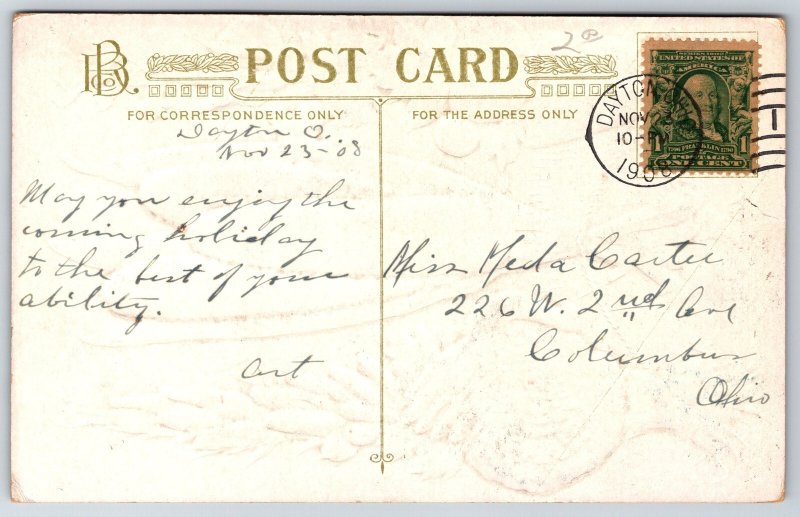 POST CARD
2
FOR CORRESPONDENCE ONLY
FOR THE ADDRESS ONLY
SERIES 1902
UNITED STATES OF
AMERICA
1706 FRANKLIN 1790
POSTAGE
1 ONE CENT 1
DAYTON, OHIO
NOV 23
10-PM
1908
Dayton O.
Nov 23-08
May you enjoy the
coming holiday
to the best of your
ability.
Art
Miss Meda Carter
226 W. 2nd Ave
Columbus
Ohio